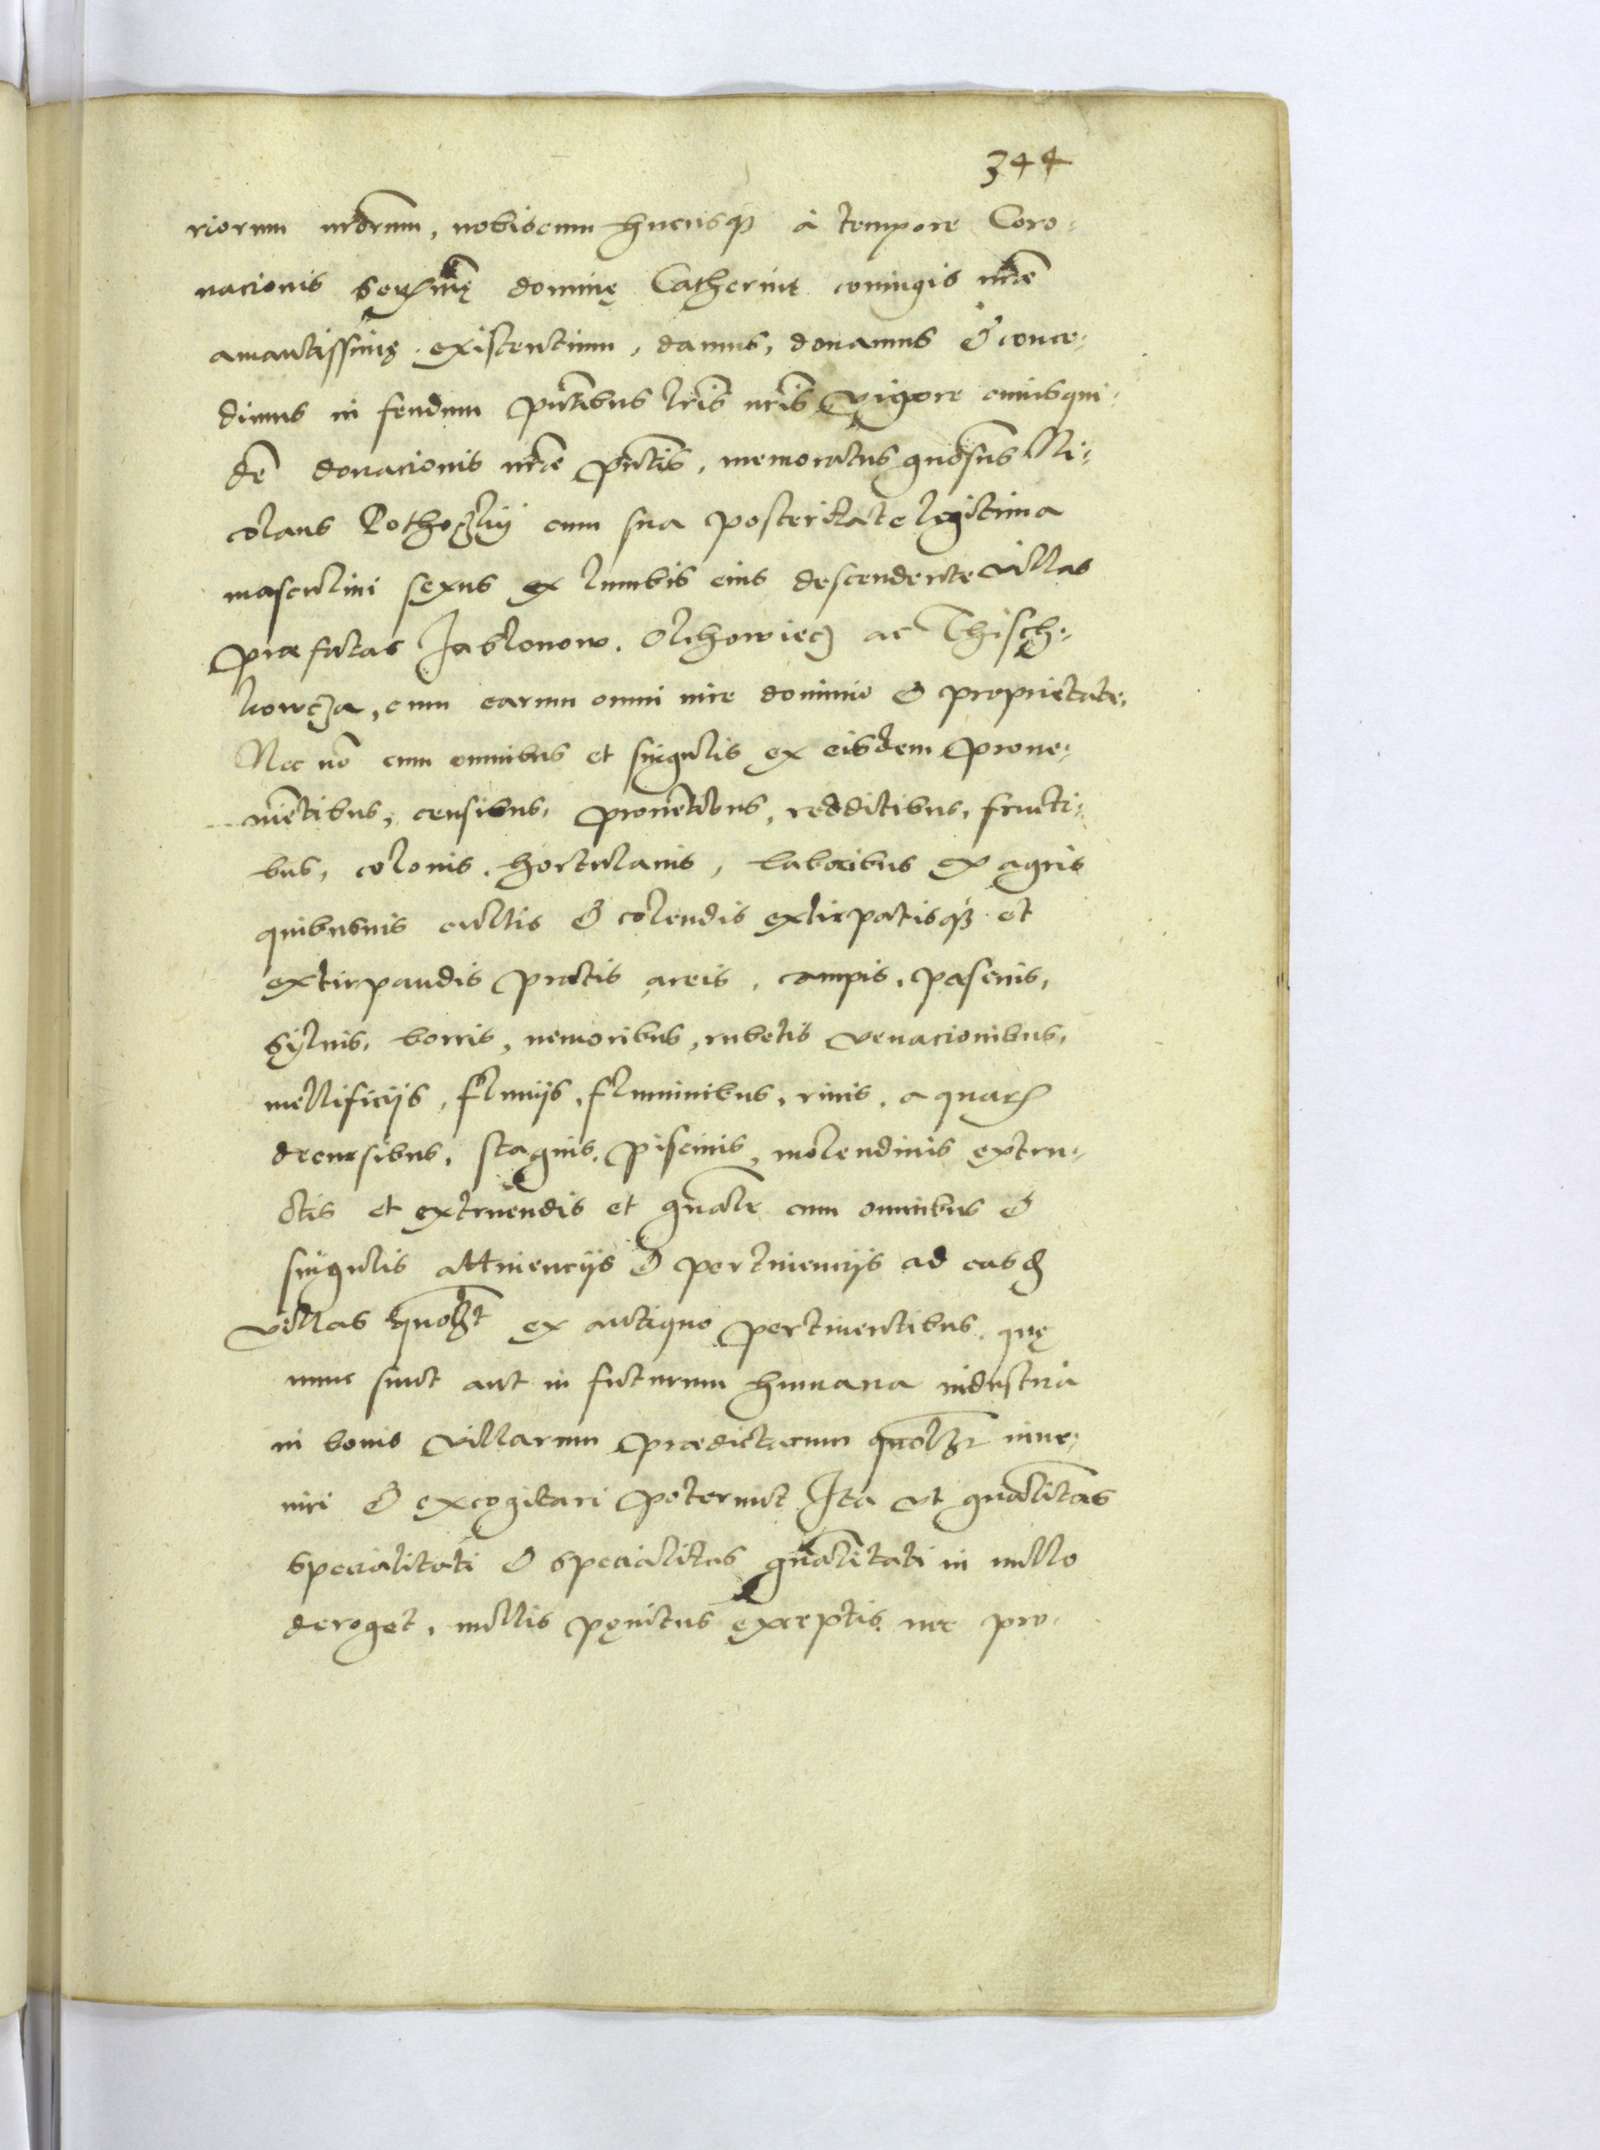 344
riorum nr̃orum, nobiscum hucusq3 à tempore Coro-
nacionis Ser̃mę dominę Catherinę coniugis nr̃ae
amantissimę existentium, damus, donamus & conce-
dimus in feudum pñtibus lr̃is nr̃is vigore cuiusqui-
dē donacionis nr̃ae pñtis, memoratus gñosus Ni-
colaus Pothoczky cum sua posteritate legitima
masculini sexus ex lumbis eius descendente villas
præfatas Jablonow, Olchowiecz ac Thisch-
kowcza, cum earum omni iure dominio & proprietate.
Nec nō cum omnibus et singulis ex eisdem prove-
niētibus, censibus, proventibus, redditibus, fructi-
bus, colonis, hortulanis, laboribus ex agris
quibusuis cultis & colendis extirpatisq3 et
extirpandis pratis areis, campis, pascuis,
sylvis, borris, nemoribus, rubetis venacionibus,
mellificijs, fluuijs, fluminibus, riuis, aquar̃
decursibus, stagnis, piscinis, molendinis extru-
ctis et extruendis et gñale cum omnibus &
singulis attinencijs & pertinencijs ad easd̃
villas quol3t ex antiquo pertinentibus, quę
nunc sunt aut in futurum humana industria
in bonis villarum prædictarum quol3t inue-
niri & excogitari poterunt Ita vt gñalitas
specialitati & specialitas gñalitati in nullo
deroget, nullis pęnitus exceptis nec pro-